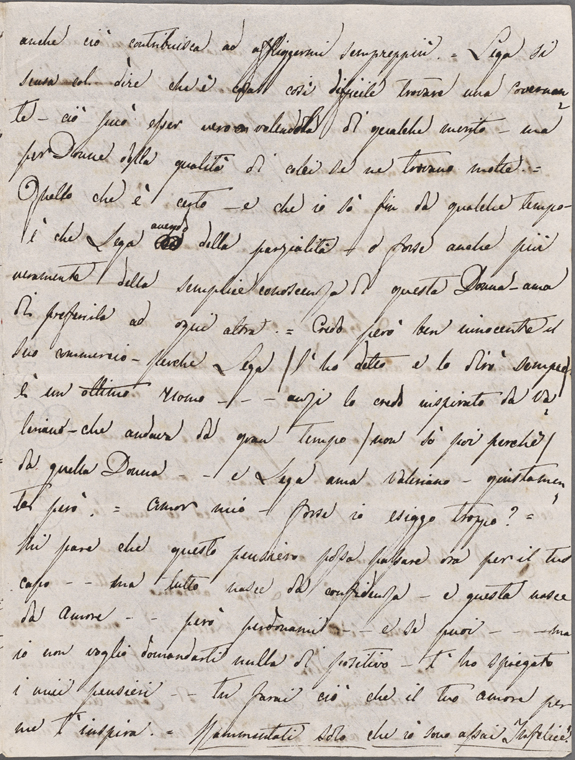 anche ciò contribuisca ad affliggermi semprepiù. = Lega sà
senza col dire che è cosa così difficile trovare una Governan=
te – ciò può esser vero volendola di qualche merito – ma
per Donne della qualità di colei se ne trovano molte. =
Quello che è certo – e che io sò fin da qualche tempo –
è che Lega avendo della parzialità – o forse anche più
veramente della semplice conoscenza di questa Donna – ama
di preferirla ad ogni altra. = Credo però ben innocente il
suo commercio – perche Lega /l'ho detto e lo dirò sempre/
è un ottimo Uomo – – – anzi lo credo inspirato da Va
leriano – che andava da gran tempo /non sò poi perchè/
da quella Donna – e Lega ama Valeriano – giustamen
te però. = Amor mio – forse io esiggo troppo? =
Mi pare che questo pensiero possa passare ora per il tuo
capo – – ma tutto nasce da confidenza – e questa nasce
da Amore – – però perdonami – e se puoi – – – ma
io non voglio domandarti nulla di positivo – t'ho spiegato
i miei pensieri – tu farai ciò che il tuo amore per
me t'inspira. = Rammentati solo che io sono assai Infelice!